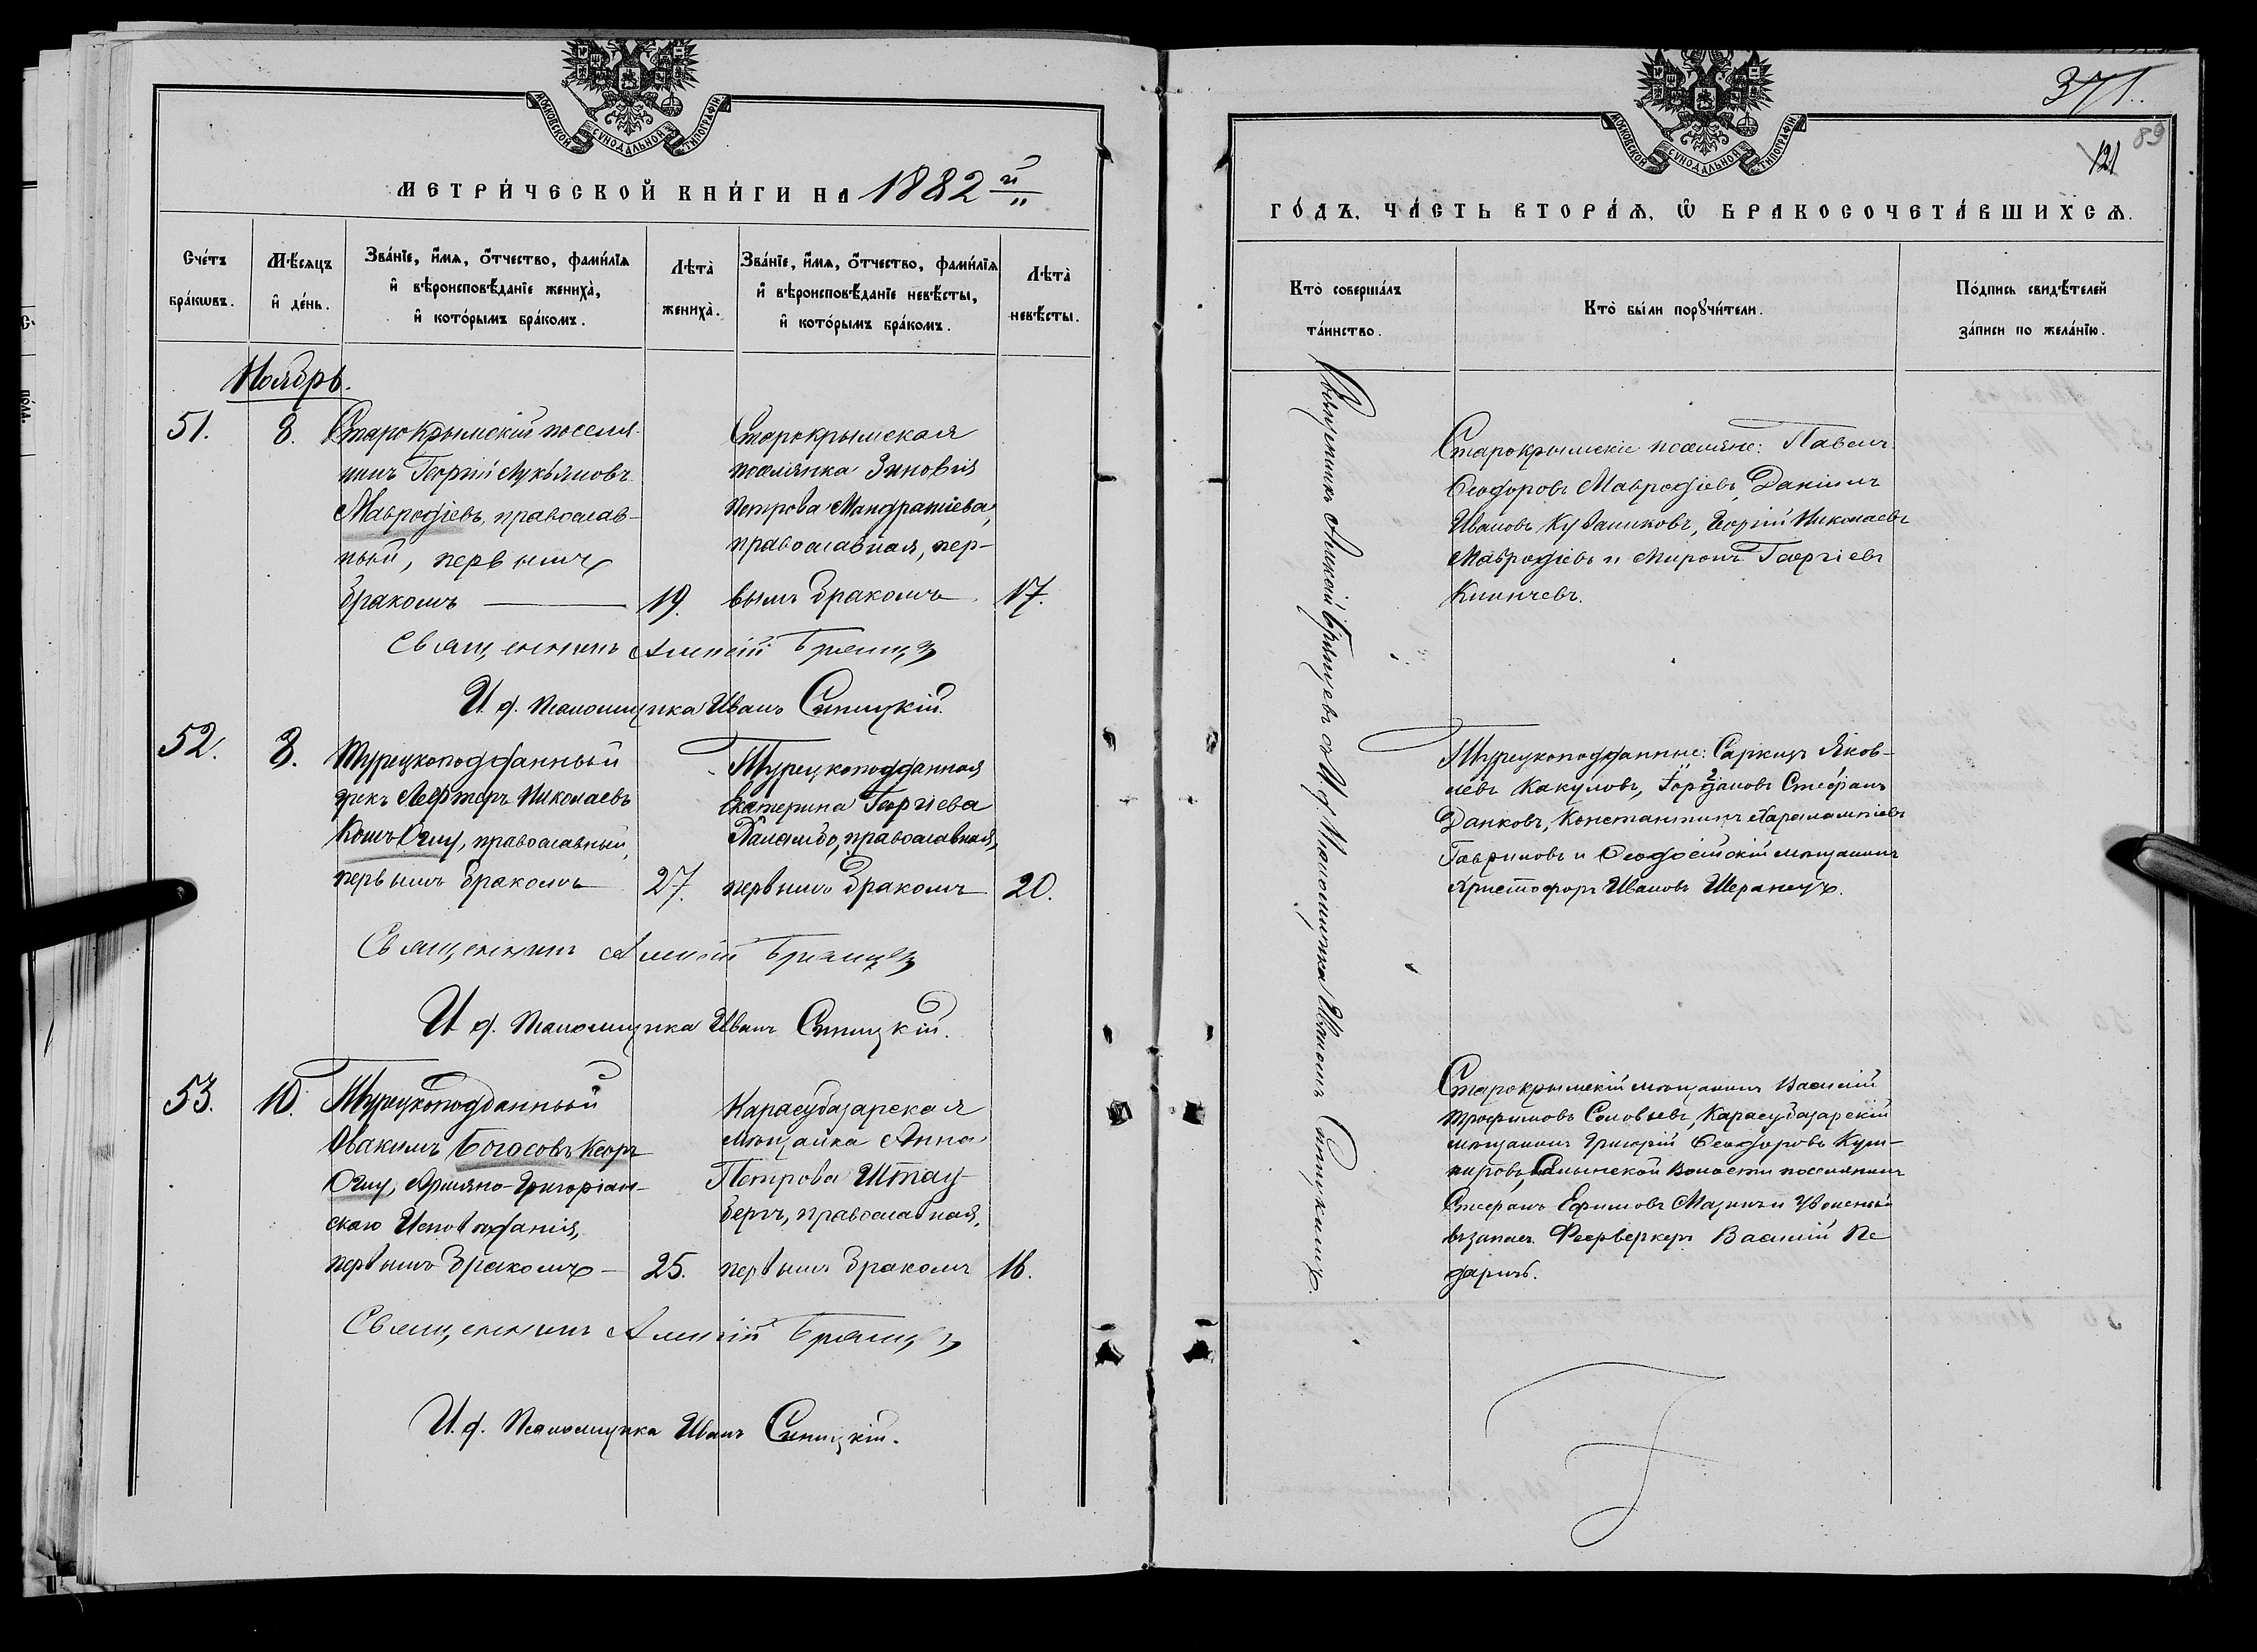 МОСКОВСКОЙ СУНОДАЛЬНОЙ ТИПОГРАФІИ
МЕТРИ́ЧЕСКОЙ КНИ́ГИ НА 1882 й
Сче́тъ бра́кѡвъ.
Мѣ́сяцъ и҆ де́нь.
Зва́нїе, и҆́мѧ, ѻ҆́тчество, фами́лїѧ
и҆ вѣроисповѣ́данїе жениха̀,
и҆ кото́рымъ бра́комъ.
Лѣта̀ жениха̀.
Зва́нїе, и҆́мѧ, ѻ҆́тчество, фами́лїѧ
и҆ вѣроисповѣ́данїе невѣ́сты,
и҆ кото́рымъ бра́комъ.
Лѣта̀ невѣ́сты.
Ноябрь.
51.
8.
Старокрымскій поселя-
нинъ Георгій Лукьяновъ
Мавродіевъ, православ-
ный, первымъ
бракомъ
19.
Старокрымская
поселянка Зиновія
Петрова
православная, пер-
вымъ бракомъ
17.
Священникъ Алексій
И. д. Псаломщика Иванъ Синицкій.
52.
8.
Турецкоподданный
грекъ Лефтеръ Николаевъ
православный,
первымъ бракомъ
27.
Турецкоподданная
Екатерина Георгіева
православная,
первымъ бракомъ
20.
Священникъ Алексій
И. д. Псаломщика Иванъ Синицкій.
53.
10.
Турецкоподданный
Овакимъ Богосовъ Кеоръ
Оглу, Армяно-Григоріан-
скаго Исповѣданія,
первымъ бракомъ
25.
Карасубазарская
мѣщанка Анна
Петрова Штау-
бергъ, православная,
первымъ бракомъ
16.
Священникъ Алексій
И. д. Псаломщика Иванъ Синицкій.
371.
89
121
МОСКОВСКОЙ СУНОДАЛЬНОЙ ТИПОГРАФІИ
ГО́ДЪ, ЧА́СТЬ ВТОРА́Ѧ, Ѡ҆ БРАКОСОЧЕТА́ВШИХСѦ.
Кто̀ соверша́лъ та́инство.
Кто̀ бы́ли порꙋчи́тели.
По́дпись свидѣ́телей
за́писи по жела́нїю.
Священникъ Алексій съ И. д. Псаломщика Иваномъ Синицкимъ.
Старокрымскіе поселяне: Павелъ
Ѳеодоровъ Мавродіевъ, Даніилъ
Ивановъ Георгій Николаевъ
Мавродіевъ и Миронъ Георгіевъ
Турецкоподданные: Саркизъ Яков-
левъ Какуловъ, Стефанъ
Данковъ, Константинъ Харалампіевъ
Гавриловъ и Ѳеодосійскій мѣщанинъ
Христофоръ Ивановъ
Старокрымскій мѣщанинъ Василій
Трофимовъ Соловьевъ, Карасубазарскій
мѣщанинъ Григорій Ѳеодоровъ Куш-
нировъ, волости поселянинъ
Стефанъ Ефимовъ Мазинъ и уволенный
въ запасъ Фейерверкеръ Василій